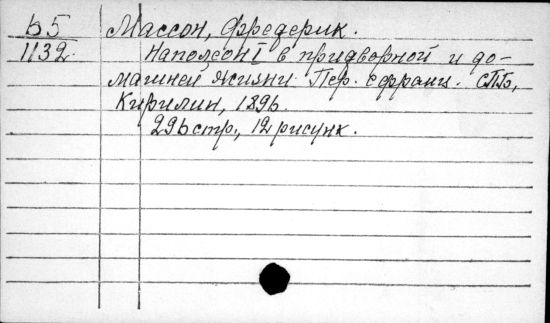 Б5 Массон, Фредерик.
1132 Наполеон I в придворной и до-
машней жизни. Пер. с франц. СПБ,
Кирилин, 1896.
296 стр., 12 рисунк.